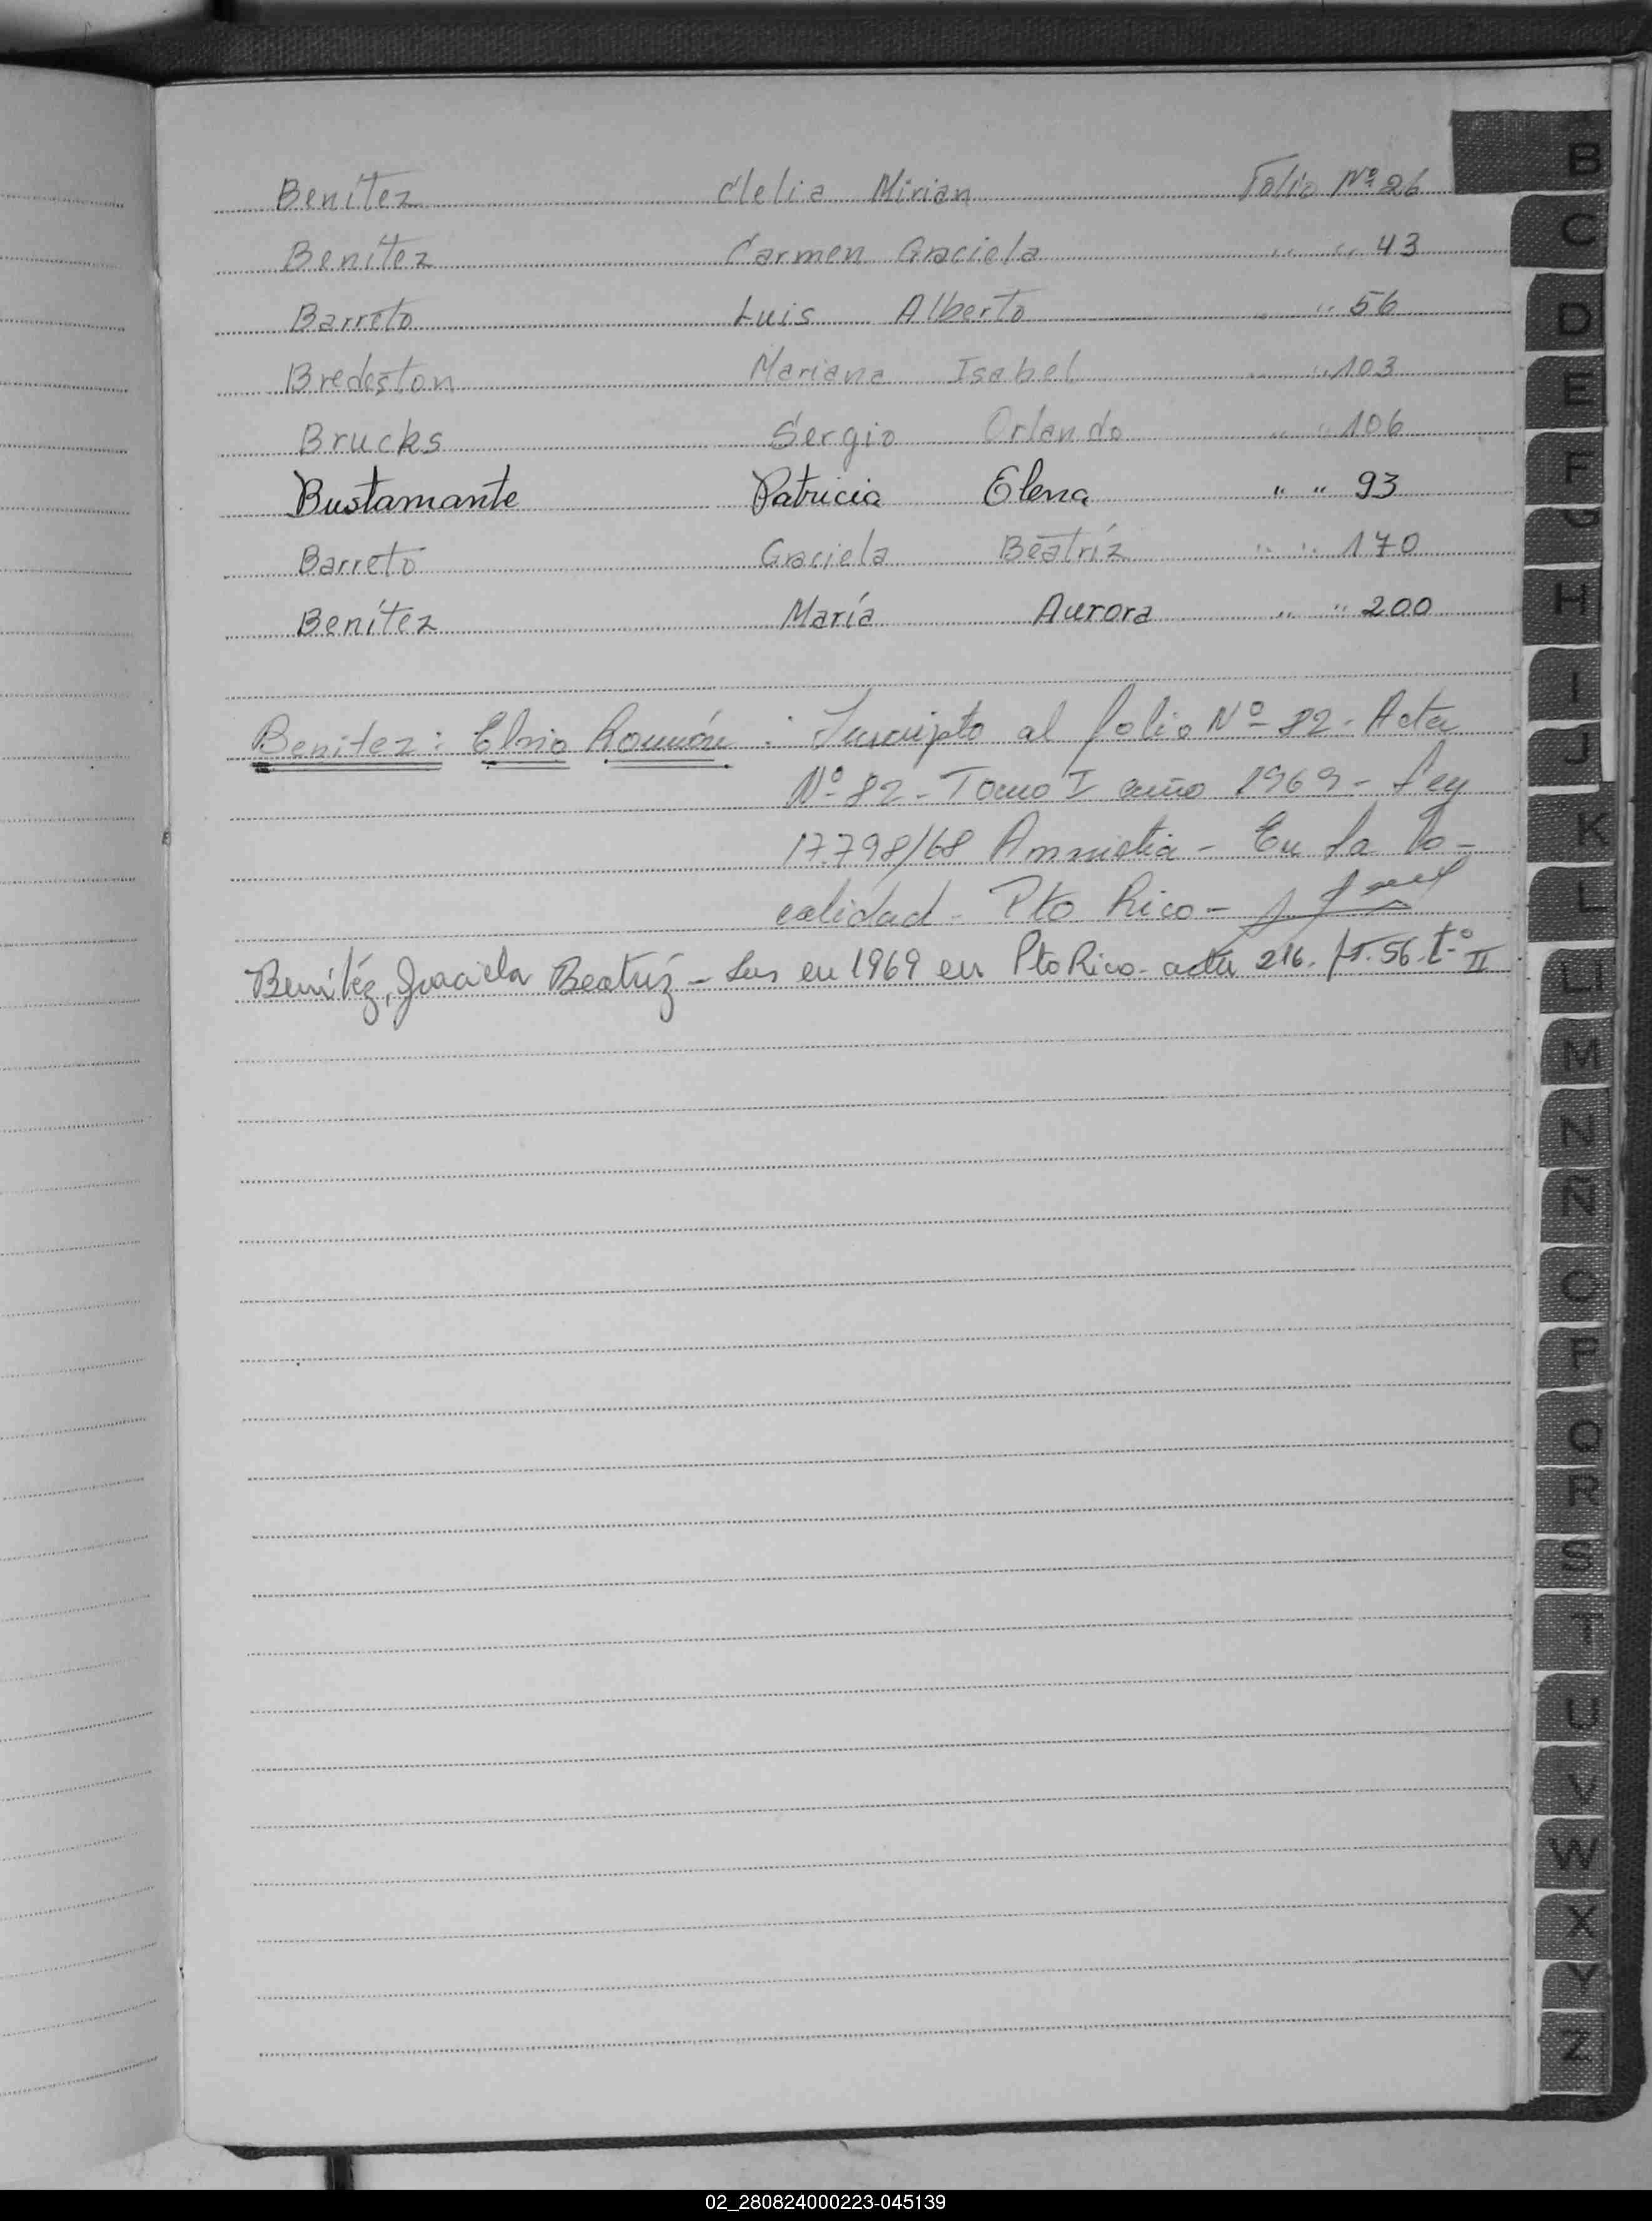 Benítez Clelia Mirian Folio Nº 26
Benítez Carmen Graciela " " 43
Barreto Luis Alberto " " 56
Bredeston Mariana Isabel " " 103
Brucks Sergio Orlando " " 106
Bustamante Patricia Elena " " 93
Barreto Graciela Beatríz " " 170
Benítez María Aurora " " 200
Benitez: Elsio Ramón : Inscripto al folio Nº 82 - Acta
Nº 82 - Tomo I año 1969 - Ley
17.798/68 Amnistia - En la lo-
calidad - Pto Rico -
Benítéz, Graciela Beatríz - Ins en 1969 en Pto Rico - acta 216. fº. 56. tº II
B
C
D
E
F
G
H
I
J
K
L
LL
M
N
Ñ
O
P
Q
R
S
T
U
V
W
X
Y
Z
02_280824000223-045139